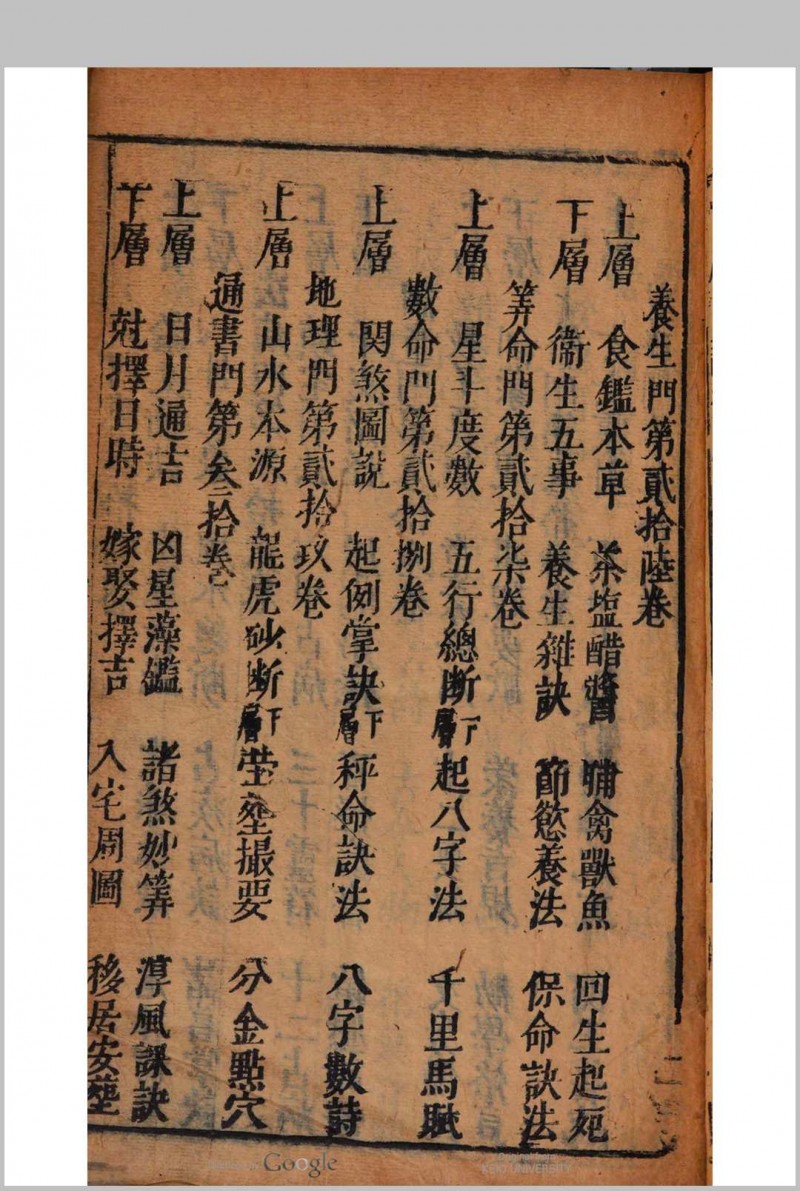 養生門第貳拾陸卷
上層 食鑑本草 茶塩醋醬 哺禽獸魚 回生起死
下層 衛生五事 養生雜訣 節慾養法 保命訣法
筭命門第貳拾柒卷
上層 星斗度數 五行總断 下層 起八字法 千里馬賦
數命門第貳拾捌卷
上層 関煞圖說 起例掌訣 下層 秤命訣法 八字數詩
地理門第貳拾玖卷
上層 山水本源 龍虎砂断 下層 塋塟撮要 分金點穴
通書門第叁拾卷
上層 日月通吉 凶星藻鑑 諸煞妙筭 淳風課訣
下層 尅擇日時 嫁娶擇吉 入宅周圖 移居安塟
Google
Original from
KEIO UNIVERSITY